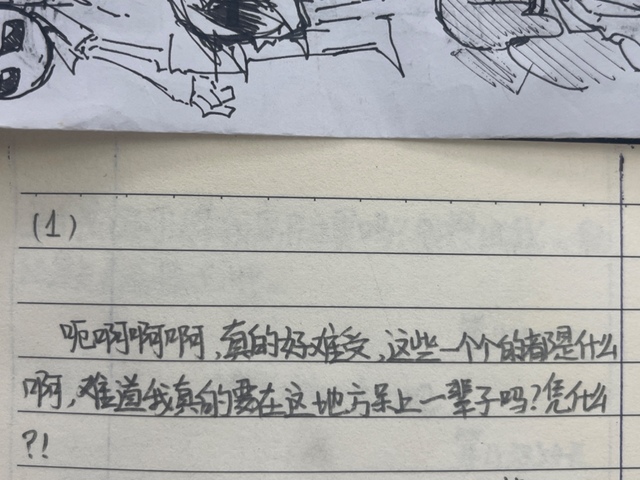 (1)
呃啊啊啊,真的好难受,这些一个个的都是什么
啊,难道我真的要在这地方呆上一辈子吗?凭什么
?!